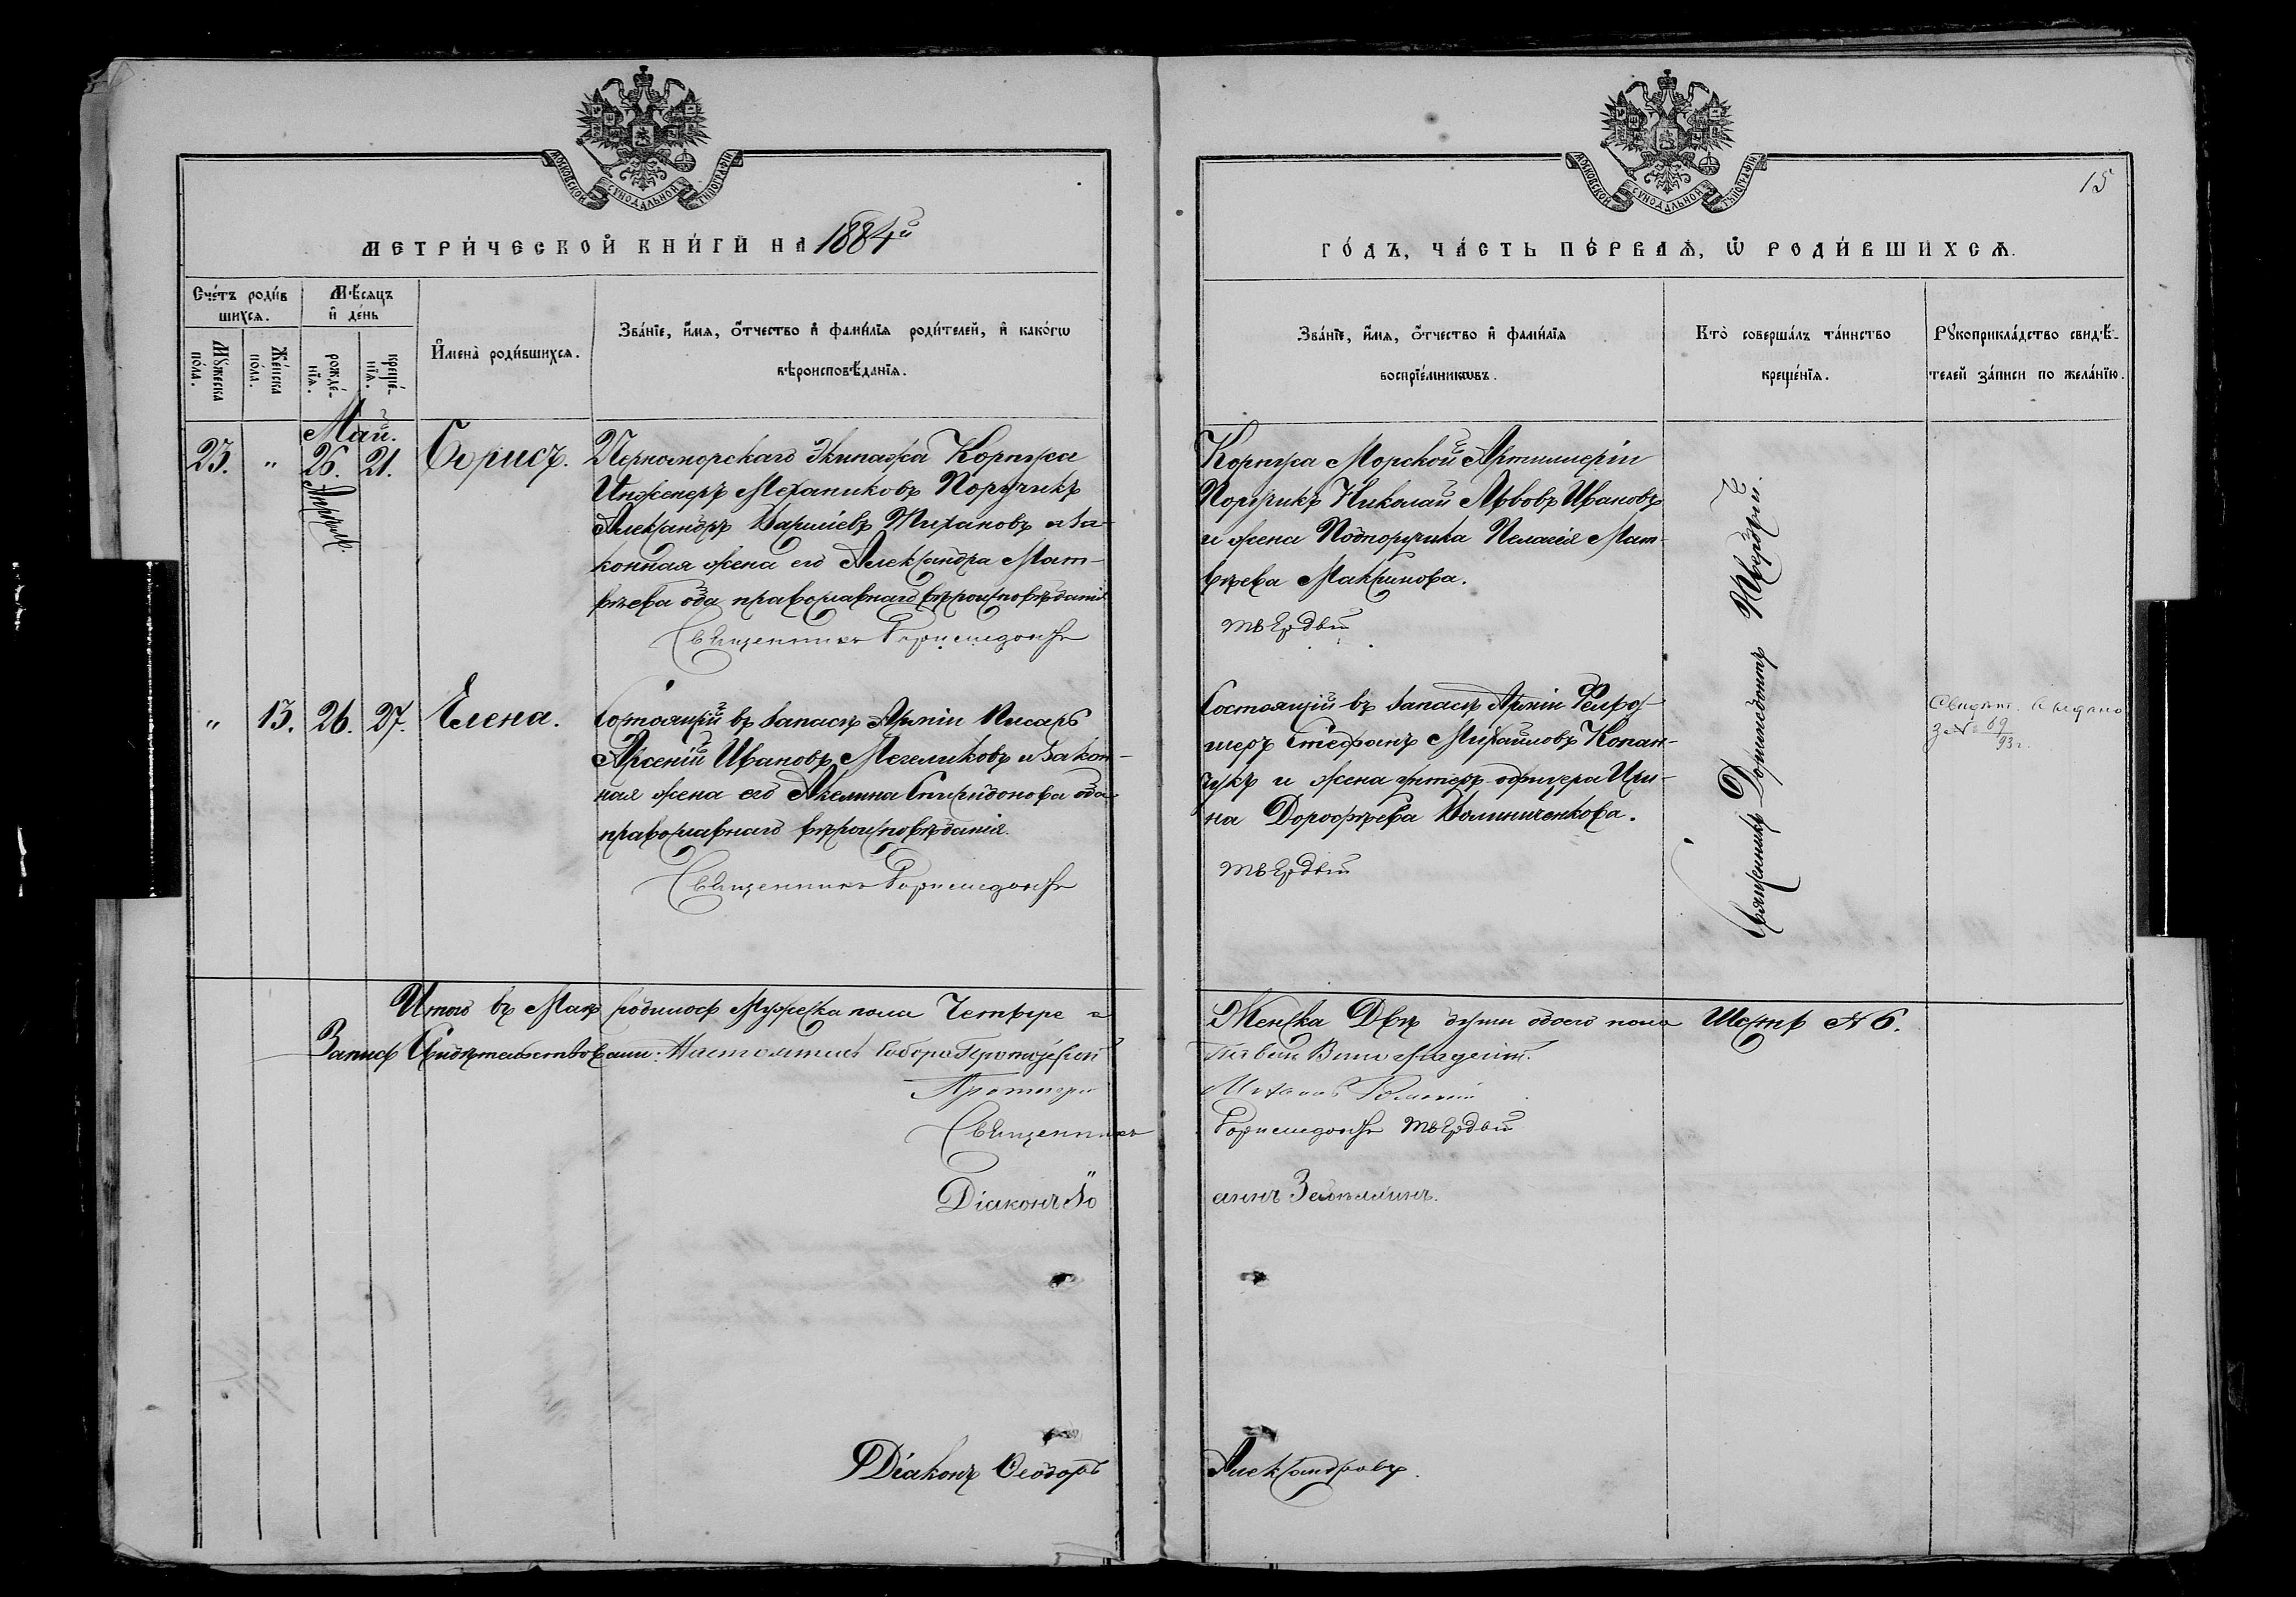 МОСКОВСКОЙ СѴНОДАЛЬНОЙ ТѴПОГРАФІИ
МЕТРИ́ЧЕСКОЙ КНИ́ГИ НА 1884й
Сче́тъ роди́в
шихся.
Мѣ́сяцъ
и҆ де́нь
Мꙋ́жеска
по́ла.
Же́нска
по́ла.
рожде́-
нїя.
креще́-
нїя.
И҆мена̀ роди́вшихся.
Зва́нїе, и҆́мя, ѻ҆́тчество и҆ фами́лїя роди́телей, и҆ како́гѡ
вѣроисповѣ́данїя.
Май.
23. " 26. 21. Борисъ.
Апрѣль.
Черноморскаго Экипажа Корпуса
Инженеръ Механиковъ Поручикъ
Александръ Васильевъ Тихановъ и за-
конная жена его Александра Мат-
вѣева оба православнаго вѣроисповѣданія
Священникъ Дормидонтъ
" 13. 26. 27. Елена.
Состоящій въ запасѣ Арміи Писарь
Арсеній Ивановъ Мегеликовъ и закон-
ная жена его Акелина Спиридонова оба
православнаго вѣроисповѣданія.
Священникъ Дормидонтъ
Итого въ Маѣ родилось Мужеска пола Четыре и
Записъ Свидѣтельствовали: Настоятель Собора Протоіерей
Протоіерей
Священникъ
Діаконъ Іо
Діаконъ Ѳеодоръ
МОСКОВСКОЙ СѴНОДАЛЬНОЙ ТѴПОГРАФІИ
15
ГО́ДЪ, ЧА́СТЬ ПЕ́РВАѦ, Ѡ҆ РОДИ́ВШИХСѦ.
Зва́нїе, и҆́мя, ѻ҆́тчество и҆ фами́лїя
воспрїе́мникѡвъ.
Кто̀ соверша́лъ та́инство
креще́нїя.
Рꙋкоприкла́дство свидѣ́-
телей за́писи по жела́нїю.
Корпуса Морской Артиллеріи
Поручикъ Николай Львовъ Ивановъ
и жена Подпоручика Пелагія Мат-
вѣева Максимова.
Твердый
Священникъ Дормидонтъ Твердый.
Состоящій въ запасѣ Арміи Фельдо-
шеръ Стефанъ Михайловъ Копан-
чукъ и жена унтеръ-офицера Ири-
на Дорофѣева Калиниченкова.
Твердый
Свидѣт. выдано
З № 69
93 г.
Женска Двѣ души обоего пола Шесть № 6.
Михаилъ
Дормидонтъ Твердый
аннъ
Александровъ.